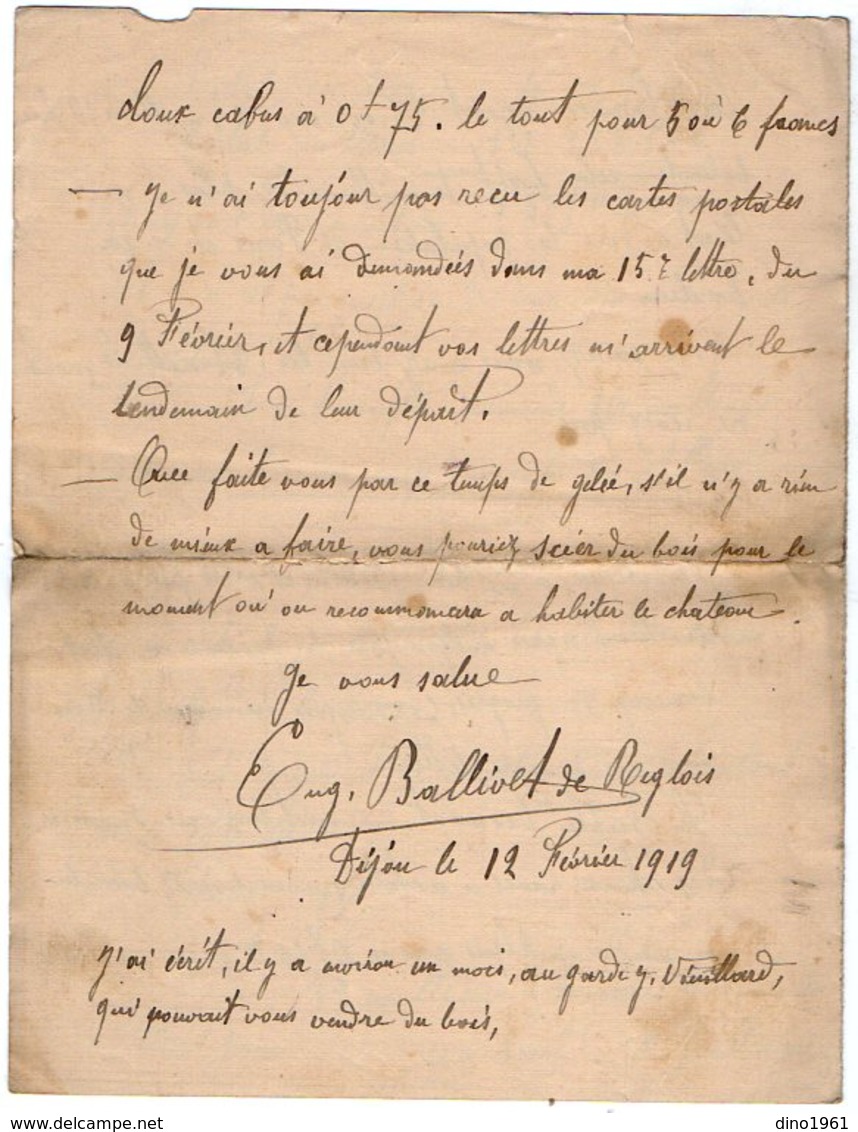 doux cabus à 0f75. le tout pour 5 où 6 francs
— Je n'ai toujour pas recu les cartes postales
que je vous ai demandeés dans ma 15e lettre, du
9 Février, et cependant vos lettres m'arrivent le
lendemain de leur départ.
— Que faite vous par ce temps de gelée, s'il n'y a rien
de mieux a faire, vous pouriez scier du bois pour le
moment où on recommomcera a habiter le chateau.
Je vous salue
Eug. Ballivet de Reglois
Dijon le 12 Février 1919
J'ai écrit, il y a un mois, au garde Vieillard,
qui pouvait vous vendre du bois,
dino1961